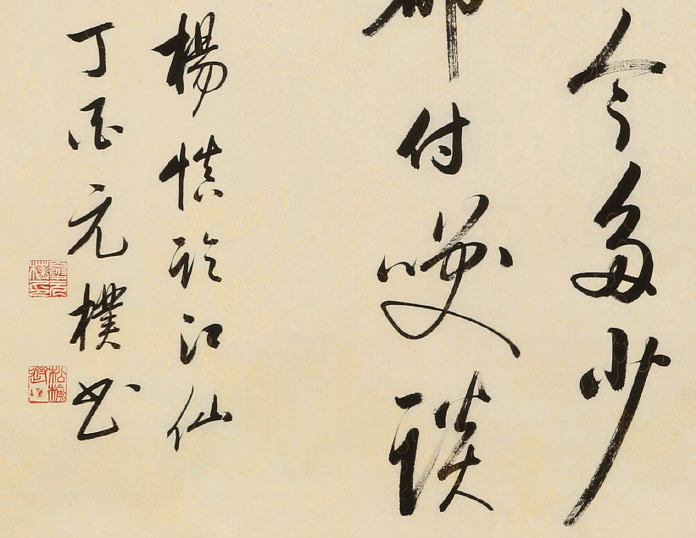 今多少
都付咲談
楊慎臨江仙
丁酉元樸书